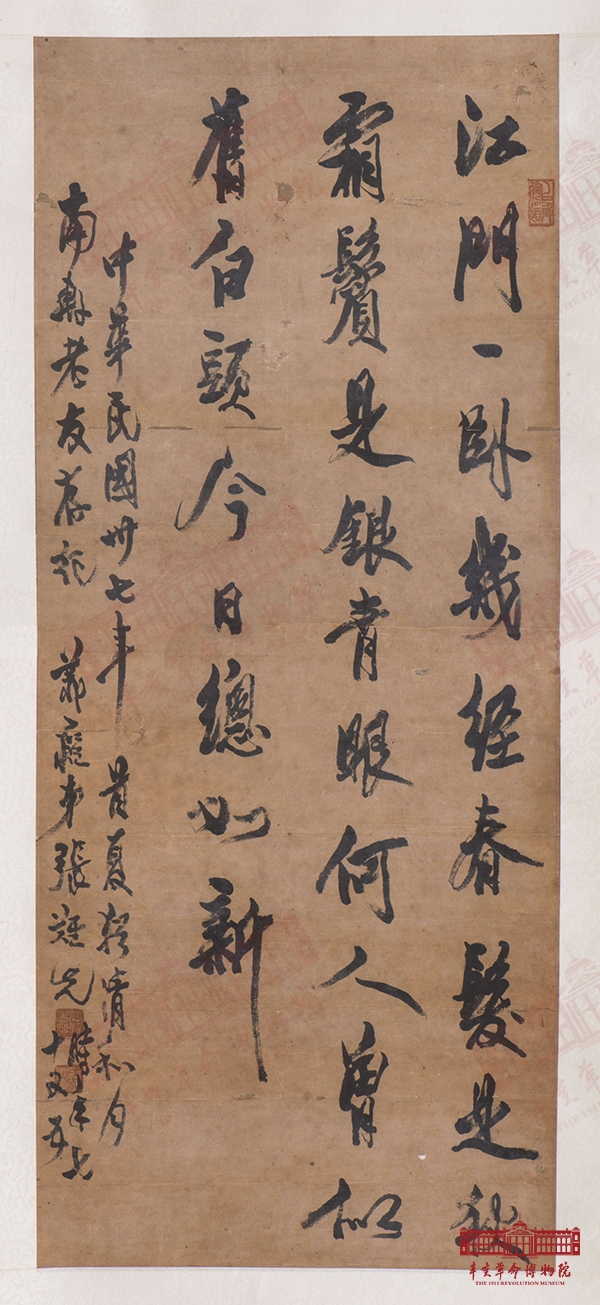 江門一卧幾經春髮是秋
霜鬢是銀青眼何人曾似
舊白頭今日總如新
中華民國卅七年首夏猶清和月
南 老友 弟張難先時年七
十又五
辛亥革命博物院
THE 1911 REVOLUTION MUSEUM